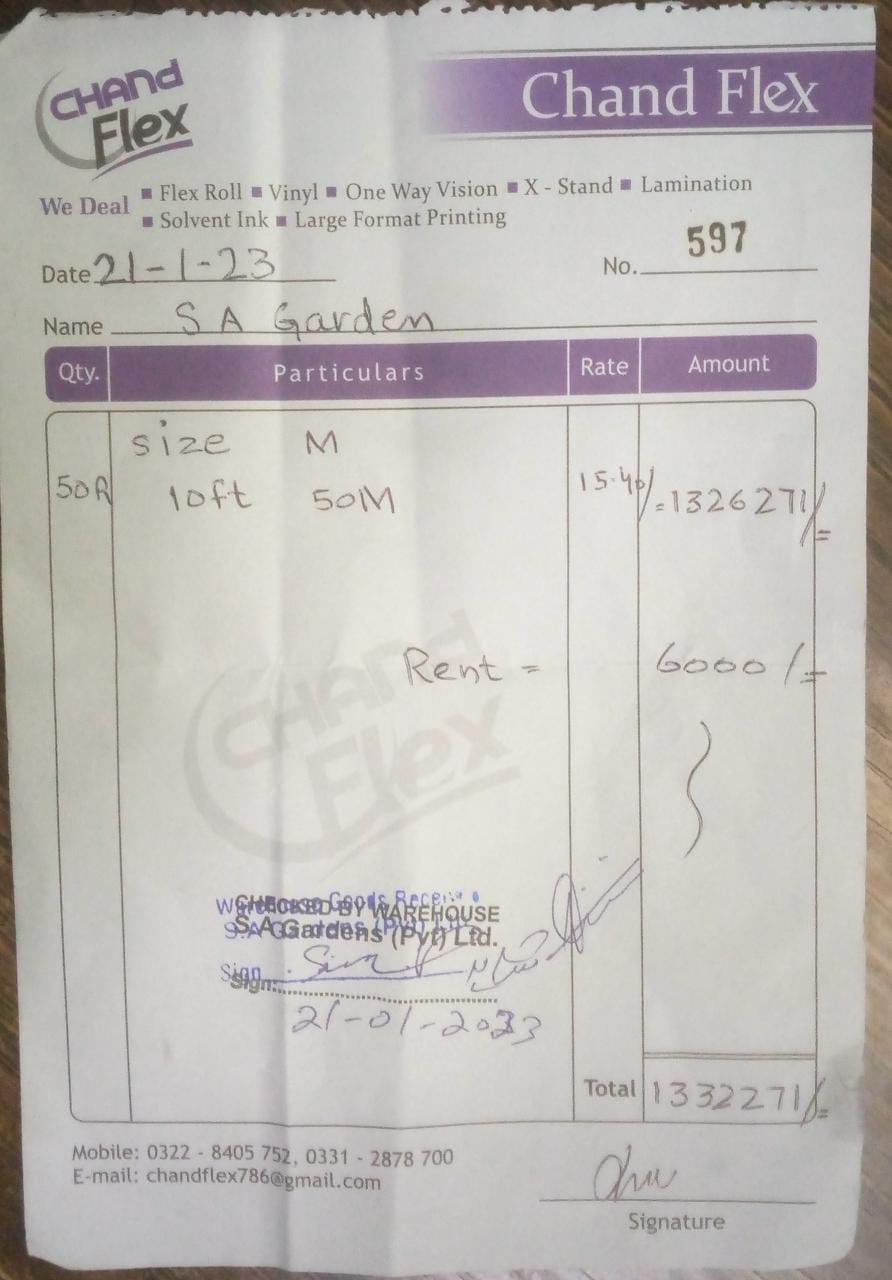 CHAND
Flex
Chand Flex
We Deal ▪ Flex Roll ▪ Vinyl ▪ One Way Vision ▪ X - Stand ▪ Lamination
▪ Solvent Ink ▪ Large Format Printing
Date 21-1-23 No. 597
Name S A Garden
Qty. Particulars Rate Amount
size M
50R 10ft 50M 15.40/= 1326271/=
Rent = 6000/=
CHAND
Flex
Warehouse Goods Receive
CHECKED BY WAREHOUSE
S.A Gardens (Pvt) Ltd.
S.A Gardens (Pvt) Ltd.
Sign
Sign:
21-01-2023
Total 1332271/=
Mobile: 0322 - 8405 752, 0331 - 2878 700
E-mail: chandflex786@gmail.com
Signature